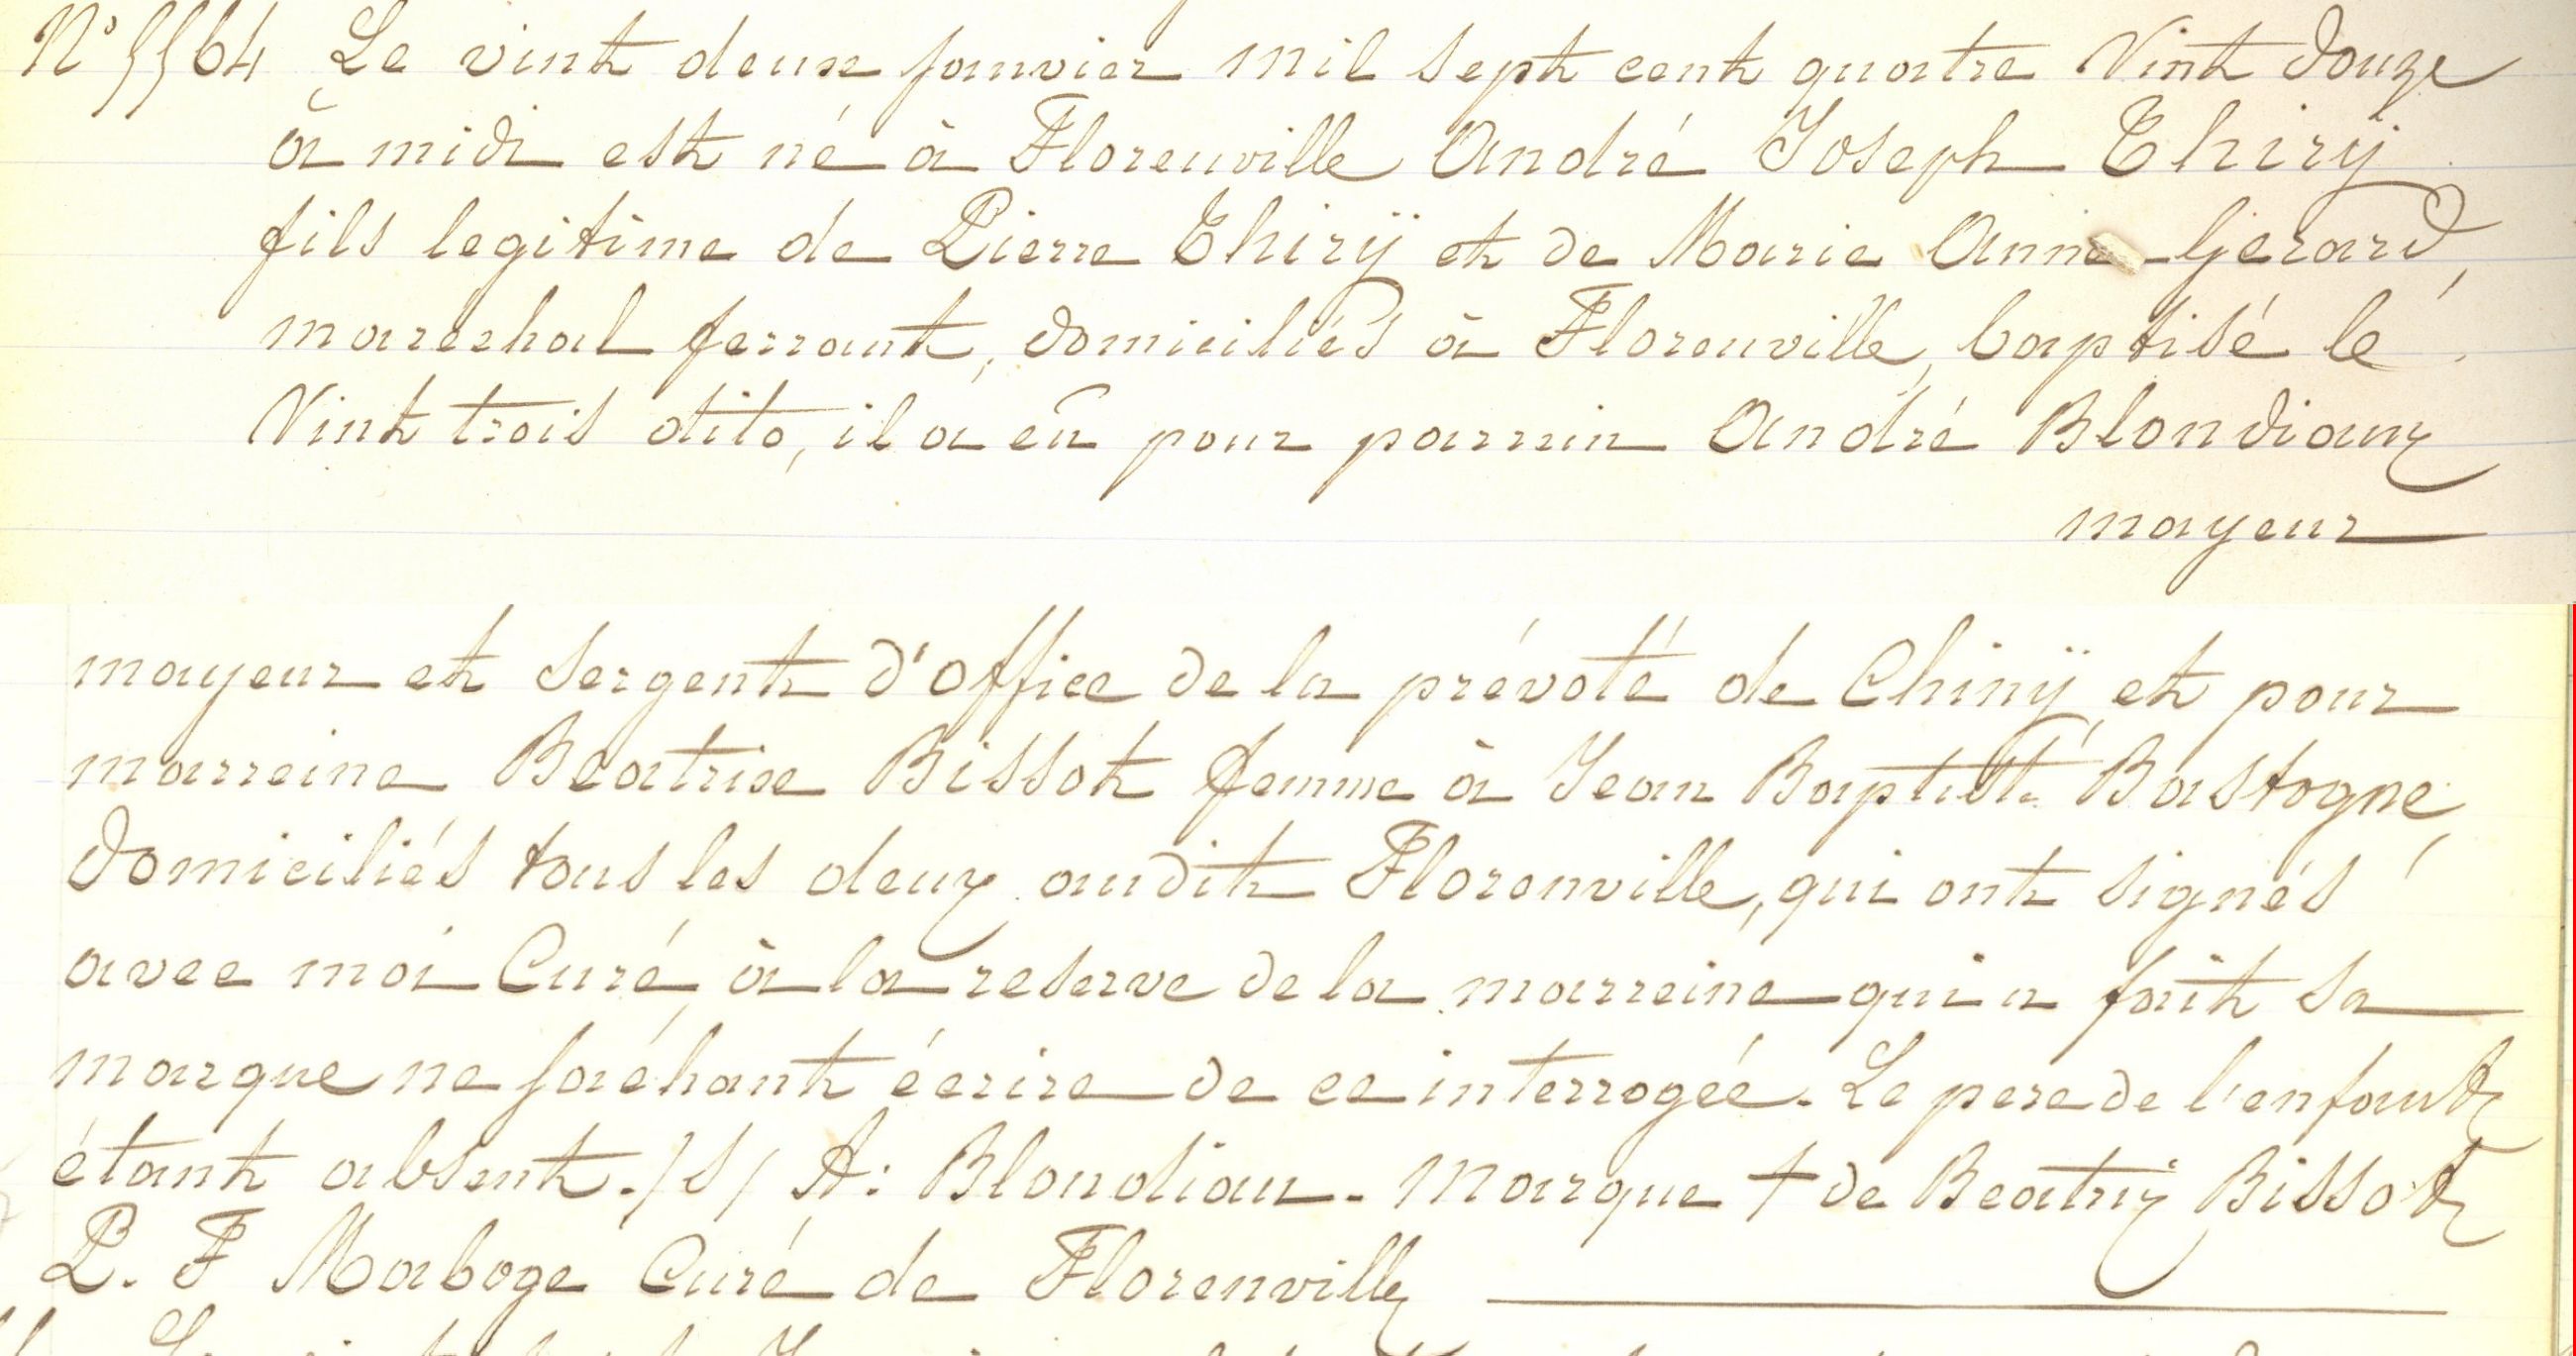 N° 5564 Le vint deux janvier mil sept cent quatre Vint douze
à midi est né à Florenville André Joseph Thirÿ
fils legitime de Pierre Thirÿ et de Marie Anne Gerard,
maréchal ferrant, domiciliés à Florenville, baptisé le
Vint trois dito, il a eû pour parrein André Blondiaux
mayeur
mayeur et sergent d'office de la prévoté de Chinÿ, et pour
marreine Beatrise Bissot femme à Jean Baptiste Bastogne,
domiciliés tous les deux audit Florenville, qui ont signés
avec moi Curé, à la reserve de la marreine qui a fait sa
marque ne sachant écrire de ce interrogée. Le pere de l'enfant
étant absent. /S/ A: Blondiau. Marque + de Beatrix Bissot
P. F Maboge Curé de Florenville